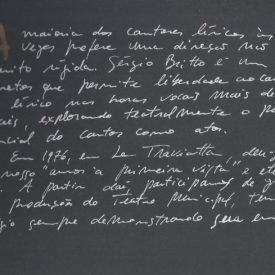 A maioria dos cantores líricos às
vezes prefere uma direção não
muito rígida. Sérgio Britto é um
que permite liberdade ao can
lírico nas horas vocais mais de
explorando teatralmente o po
cial do cantor como ator.
Em 1976, em La Traviatta, deu-
nosso "amor à primeira vista" e ete
A partir daí, participamos de
produções do Teatro Municipal, tem
gio sempre demonstrando seu em